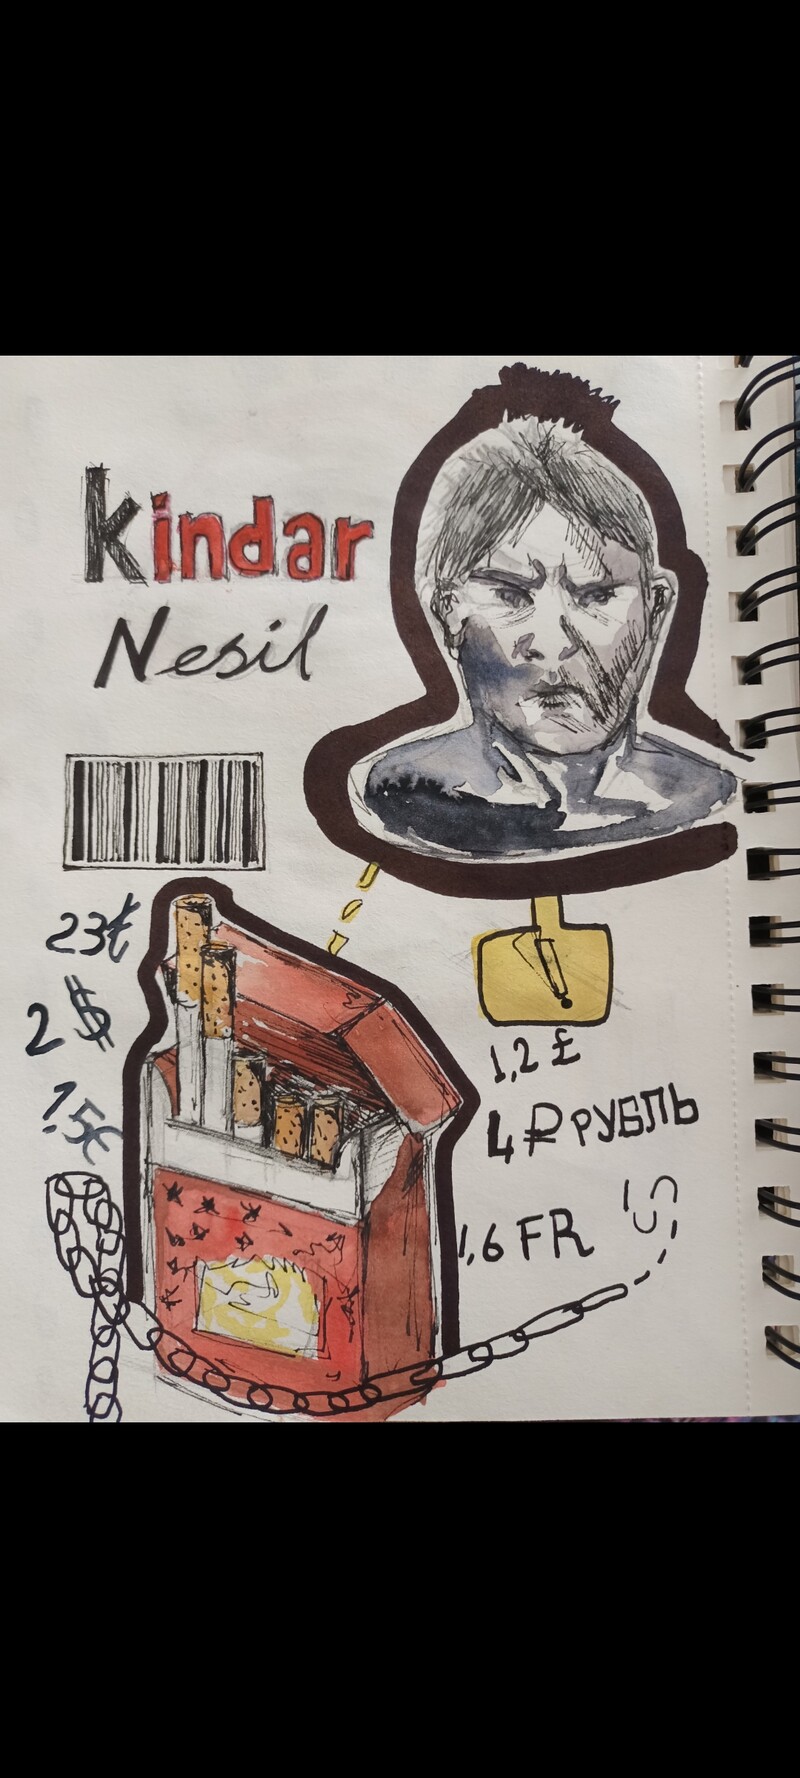 Kindar
Nesil
23₺
2 $
1,2 £
4 ₽ РУБЛЬ
1,6 FR